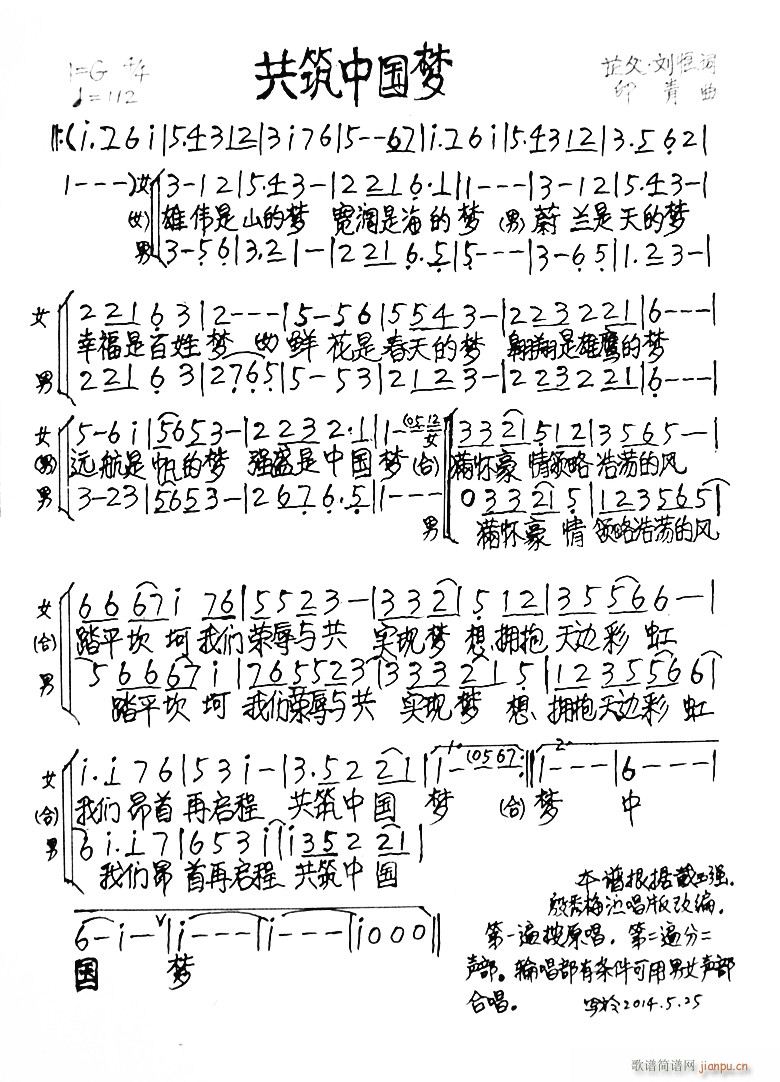 共筑中国梦
1=G 4/4
♩=112
芷父·刘恒词
印青 曲
‖:(i.7 6 i|5.4 3 1 2|3 i 7 6|5--6 7|i.7 6 i|5.4 3 1 2|3.5 6 2|
1---)女 3-1 2|5.4 3-|2 2 1 6.1|1---|3-1 2|5.4 3-|
(女)雄伟是山的梦 宽阔是海的梦 (男)蔚兰是天的梦
男 3-5 6|3.2 1-|2 2 1 6.5|5---|3-6 5|1.2 3-|
女 2 2 1 6 3|2---|5-5 6|5 5 4 3-|2 2 3 2 2 1|6---|
幸福是百姓梦 (女)鲜花是春天的梦 翱翔是雄鹰的梦
男 2 2 1 6 3|2 7 6 5|5-5 3|2 1 2 3-|2 2 3 2 2 1|6---|
女 5-6 i|5 6 5 3-|2 2 3 2.1|1-(0 5 1 2 女 3 3 2 1 5 1 2|3 5 6 5--|
(男)远航是帆的梦 强盛是中国梦(合)满怀豪情领略浩荡的风
男 3-2 3|5 6 5 3-|2 6 7 6.5|1---| 男 0 3 3 2 1 5|1 2 3 5 6 5|
满怀豪情 领略浩荡的风
女 6 6 6 7 i 7 6|5 5 2 3-|3 3 2 5 1 2|3 5 5 6 6--|
(合)踏平坎坷我们荣辱与共 实现梦想、拥抱天边彩虹
男 5 6 6 6 7 i|7 6 5 5 2 3|3 3 3 2 1 5|1 2 3 5 5 6 6|
踏平坎坷 我们荣辱与共 实现梦想、拥抱天边彩虹
女 i.i 7 6|5 3 i-|3.5 2 2 1|1.i--(0 5 6 7:‖2.i---|6---|
(合)我们昂首再启程 共筑中国梦 (合)梦 中
男 6 i.i 7|6 5 3 i|i 3 5 2 2 1|
我们昂首再启程 共筑中国
6-i-∨|i---|i---|i 0 0 0‖
国 梦
本谱根据戴玉强.
殷秀梅演唱版改编.
第一遍按原唱.第二遍分二
声部.轮唱部有条件可用男女声部
合唱。 写于2014.5.25
歌谱简谱网
jianpu.cn